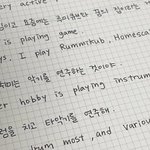 ory active
이고 요즘에는
is playing game.
ys. I play Rummikub, Homesca
취미는 악기를 연주하는 것이야.
er hobby is playing instrum
럼을 치고 타악기를 연주해.
drum most, and variou